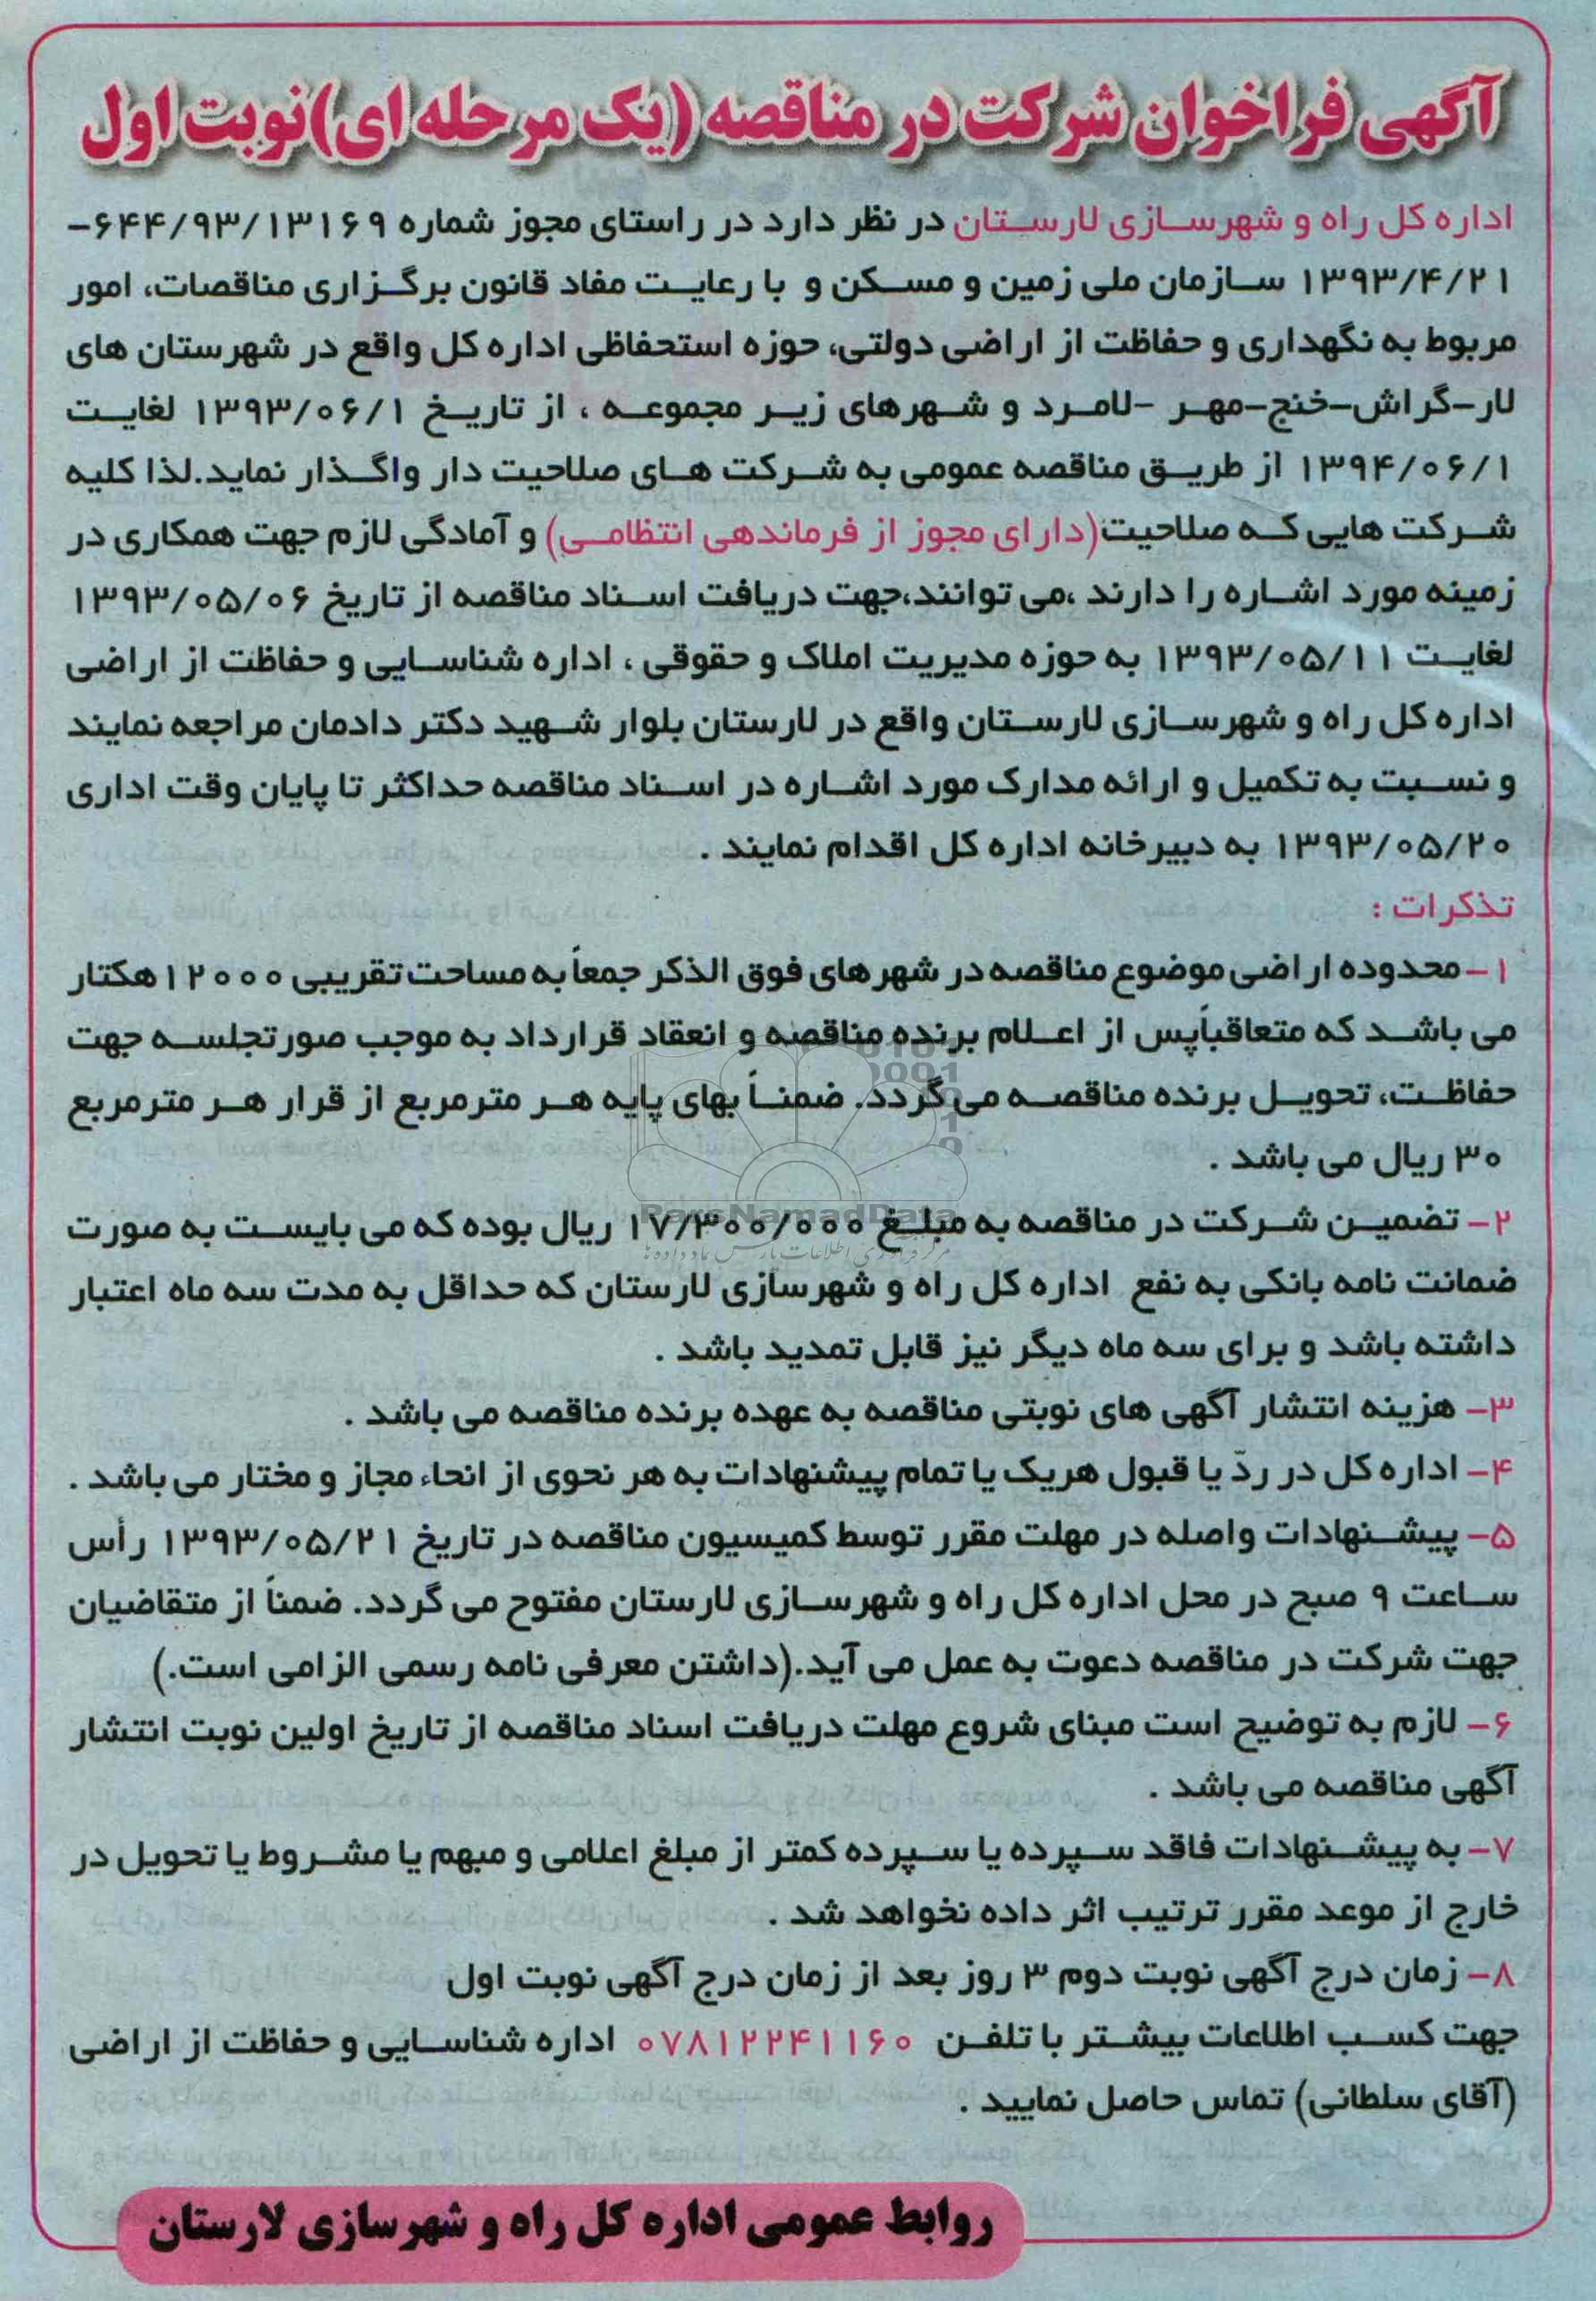 آگهی فراخوان شرکت در مناقصه (یک مرحله ای)نوبت اول
اداره کل راه و شهرسازی لارستان در نظر دارد در راستای مجوز شماره ۶۴۴/۹۳/۱۳۱۶۹-
۱۳۹۳/۴/۲۱ سازمان ملی زمین و مسکن و با رعایت مفاد قانون برگزاری مناقصات، امور
مربوط به نگهداری و حفاظت از اراضی دولتی، حوزه استحفاظی اداره کل واقع در شهرستان های
لار-گراش-خنج-مهر -لامرد و شهرهای زیر مجموعه ، از تاریخ ۱۳۹۳/۰۶/۱ لغایت
۱۳۹۴/۰۶/۱ از طریق مناقصه عمومی به شرکت های صلاحیت دار واگذار نماید.لذا کلیه
شرکت هایی که صلاحیت(دارای مجوز از فرماندهی انتظامی) و آمادگی لازم جهت همکاری در
زمینه مورد اشاره را دارند ،می توانند،جهت دریافت اسناد مناقصه از تاریخ ۱۳۹۳/۰۵/۰۶
لغایت ۱۳۹۳/۰۵/۱۱ به حوزه مدیریت املاک و حقوقی ، اداره شناسایی و حفاظت از اراضی
اداره کل راه و شهرسازی لارستان واقع در لارستان بلوار شهید دکتر دادمان مراجعه نمایند
و نسبت به تکمیل و ارائه مدارک مورد اشاره در اسناد مناقصه حداکثر تا پایان وقت اداری
۱۳۹۳/۰۵/۲۰ به دبیرخانه اداره کل اقدام نمایند .
تذکرات :
۱- محدوده اراضی موضوع مناقصه در شهرهای فوق الذکر جمعاً به مساحت تقریبی ۱۲۰۰۰ هکتار
می باشد که متعاقباًپس از اعلام برنده مناقصه و انعقاد قرارداد به موجب صورتجلسه جهت
حفاظت، تحویل برنده مناقصه می گردد. ضمناً بهای پایه هر مترمربع از قرار هر مترمربع
۳۰ ریال می باشد .
۲- تضمین شرکت در مناقصه به مبلغ ۱۷/۳۰۰/۰۰۰ ریال بوده که می بایست به صورت
ضمانت نامه بانکی به نفع اداره کل راه و شهرسازی لارستان که حداقل به مدت سه ماه اعتبار
داشته باشد و برای سه ماه دیگر نیز قابل تمدید باشد .
۳- هزینه انتشار آگهی های نوبتی مناقصه به عهده برنده مناقصه می باشد .
۴- اداره کل در ردّ یا قبول هریک یا تمام پیشنهادات به هر نحوی از انحاء مجاز و مختار می باشد .
۵- پیشنهادات واصله در مهلت مقرر توسط کمیسیون مناقصه در تاریخ ۱۳۹۳/۰۵/۲۱ رأس
ساعت ۹ صبح در محل اداره کل راه و شهرسازی لارستان مفتوح می گردد. ضمناً از متقاضیان
جهت شرکت در مناقصه دعوت به عمل می آید.(داشتن معرفی نامه رسمی الزامی است.)
۶- لازم به توضیح است مبنای شروع مهلت دریافت اسناد مناقصه از تاریخ اولین نوبت انتشار
آگهی مناقصه می باشد .
۷- به پیشنهادات فاقد سپرده یا سپرده کمتر از مبلغ اعلامی و مبهم یا مشروط یا تحویل در
خارج از موعد مقرر ترتیب اثر داده نخواهد شد .
۸- زمان درج آگهی نوبت دوم ۳ روز بعد از زمان درج آگهی نوبت اول
جهت کسب اطلاعات بیشتر با تلفن ۰۷۸۱۲۲۴۱۱۶۰ اداره شناسایی و حفاظت از اراضی
(آقای سلطانی) تماس حاصل نمایید .
روابط عمومی اداره کل راه و شهرسازی لارستان
ParsNamadData